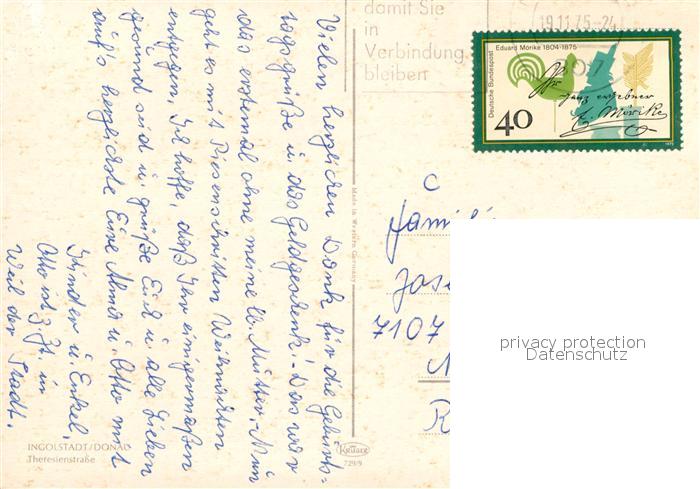 Vielen herzlichen Dank für die Geburts-
tagsgrüße u. das Geldgeschenk! - Das war
das erstemal ohne meine lb. Mutter. - Nun
geht es mit Riesenschritten Weihnachten
entgegen. Ich hoffe, daß Ihr einigermaßen
gesund seid u. grüße Euch u. alle Lieben
auf's herzlichste Eure Alma u. Otto mit
Kinder u. Enkel.
Otto ist z. Zt. in
Weil der Stadt.
INGOLSTADT/DONAU
Theresienstraße
Made in Western Germany
Krüger
729/9
damit Sie
in
Verbindung
bleiben
19.11.75-24
Deutsche Bundespost
Eduard Mörike 1804-1875
ganz ergebner
E. Mörike
40
1975
Familie
Jose
7107
privacy protection
Datenschutz